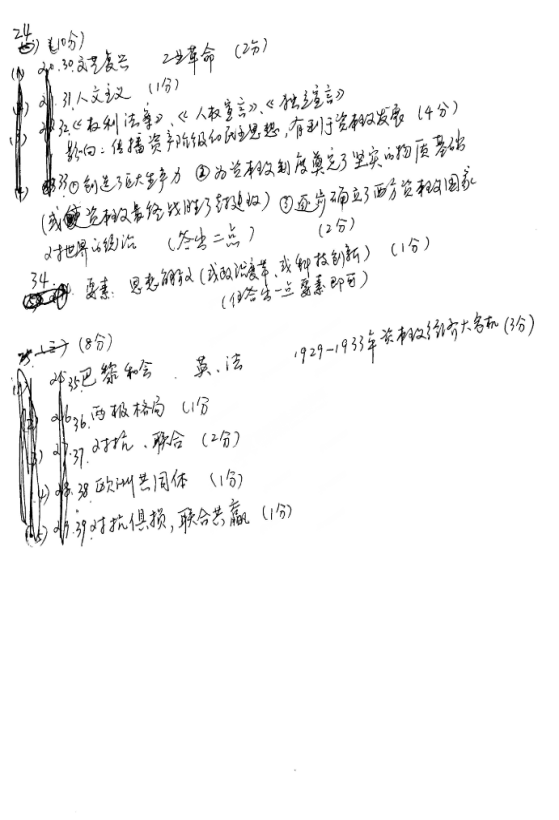 24
(10分)
30.文艺复兴 工业革命 (2分)
31.人文主义 (1分)
32.《权利法案》、《人权宣言》、《独立宣言》
影响:传播资产阶级的民主思想,有利于资本主义发展 (4分)
33.①创造了巨大生产力 ②为资本主义制度奠定了坚实的物质基础
(或 资本主义最终战胜了封建主义) ③逐步确立了西方资本主义国家
对世界的统治 (答出二点) (2分)
34. 要素:思想解放 (或政治变革、或科技创新) (1分)
(任答出一点要素即可)
(8分)
35.巴黎和会 英、法 1929-1933年资本主义经济大危机 (3分)
36.两极格局 (1分
37.对抗、联合 (2分)
38.欧洲共同体 (1分)
39.对抗俱损,联合共赢 (1分)